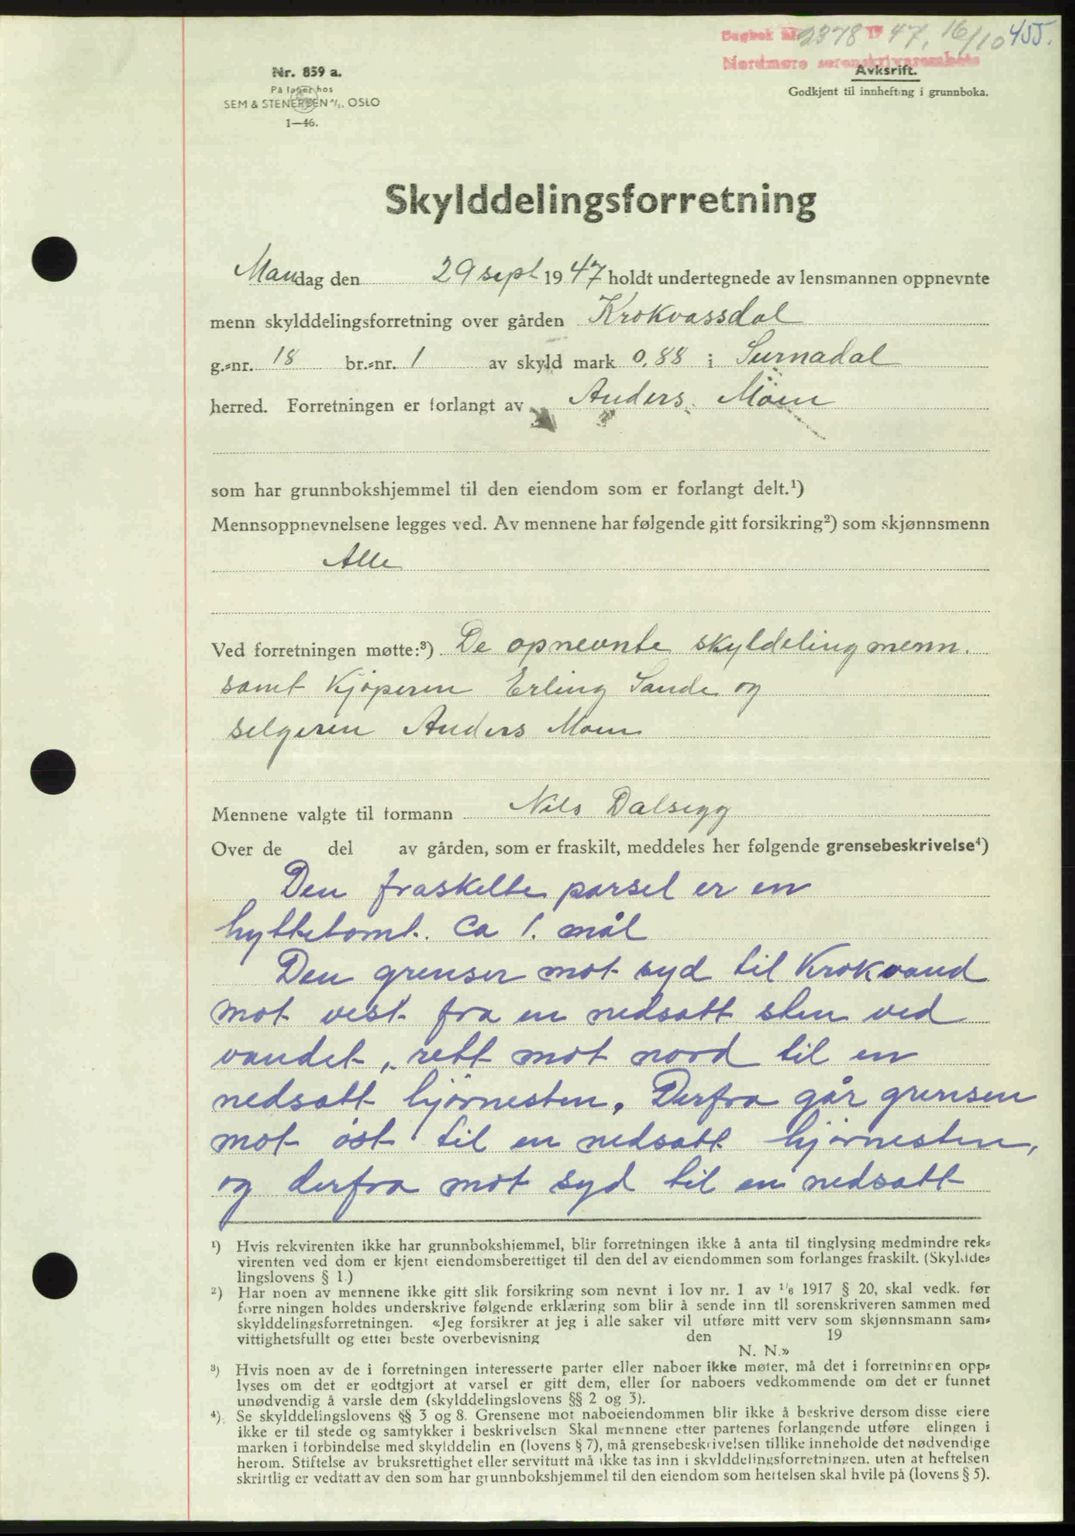 Dagbok nr. 2378 19 47, 16/10 455.
Nordmøre sorenskriverembete
Nr. 859 a.
På lager hos
SEM & STENERSEN A/S. OSLO
1—46.
Avksrift.
Godkjent til innhefting i grunnboka.
Skylddelingsforretning
Mandag den 29 sept 1947 holdt undertegnede av lensmannen oppnevnte
menn skylddelingsforretning over gården Krokvassdal
g.-nr. 18 br.-nr. 1 av skyld mark 0,88 i Surnadal
herred. Forretningen er forlangt av Anders Möen
som har grunnbokshjemmel til den eiendom som er forlangt delt.¹)
Mennsoppnevnelsene legges ved. Av mennene har følgende gitt forsikring²) som skjønnsmenn
Alle
Ved forretningen møtte:³) De opnevnte skyldeling menn.
samt Kjøperen Erling Sande og
selgeren Anders Moen
Mennene valgte til formann Nils Dalsegg
Over de del av gården, som er fraskilt, meddeles her følgende grensebeskrivelse⁴)
Den fraskelte parsel er en
hyttetomt. Ca 1. mål
Den grenser mot syd til Krokvand
mot vest fra en nedsatt sten ved
vandet, rett mot nord til en
nedsatt hjørnesten. Derfra går grensen
mot øst til en nedsatt hjørnesten,
og derfra mot syd til en nedsatt
¹) Hvis rekvirenten ikke har grunnbokshjemmel, blir forretningen ikke å anta til tinglysing medmindre rek-
virenten ved dom er kjent eiendomsberettiget til den del av eiendommen som forlanges fraskilt. (Skyldde-
lingslovens § 1.)
²) Har noen av mennene ikke gitt slik forsikring som nevnt i lov nr. 1 av 1/6 1917 § 20, skal vedk. før
forretningen holdes underskrive følgende erklæring som blir å sende inn til sorenskriveren sammen med
skylddelingsforretningen. «Jeg forsikrer at jeg i alle saker vil utføre mitt verv som skjønnsmann sam-
vittighetsfullt og etter beste overbevisning den 19
N. N.»
³) Hvis noen av de i forretningen interesserte parter eller naboer ikke møter, må det i forretningen opp-
lyses om det er godtgjort at varsel er gitt dem, eller for naboers vedkommende om det er funnet
unødvendig å varsle dem (skylddelingslovens §§ 2 og 3).
⁴) Se skylddelingslovens §§ 3 og 8. Grensene mot naboeiendommen blir ikke å beskrive dersom disse eiere
ikke er til stede og samtykker i beskrivelsen Skal mennene etter partenes forlangende utføre elingen i
marken i forbindelse med skylddelin en (lovens § 7), må grensebeskrivelsen tillike inneholde det nødvendige
herom. Stiftelse av bruksrettighet eller servitutt må ikke tas inn i skylddelingsforretningen, uten at heftelsen
skriftlig er vedtatt av den som har grunnbokshjemmel til den eiendom som heftelsen skal hvile på (lovens § 5).